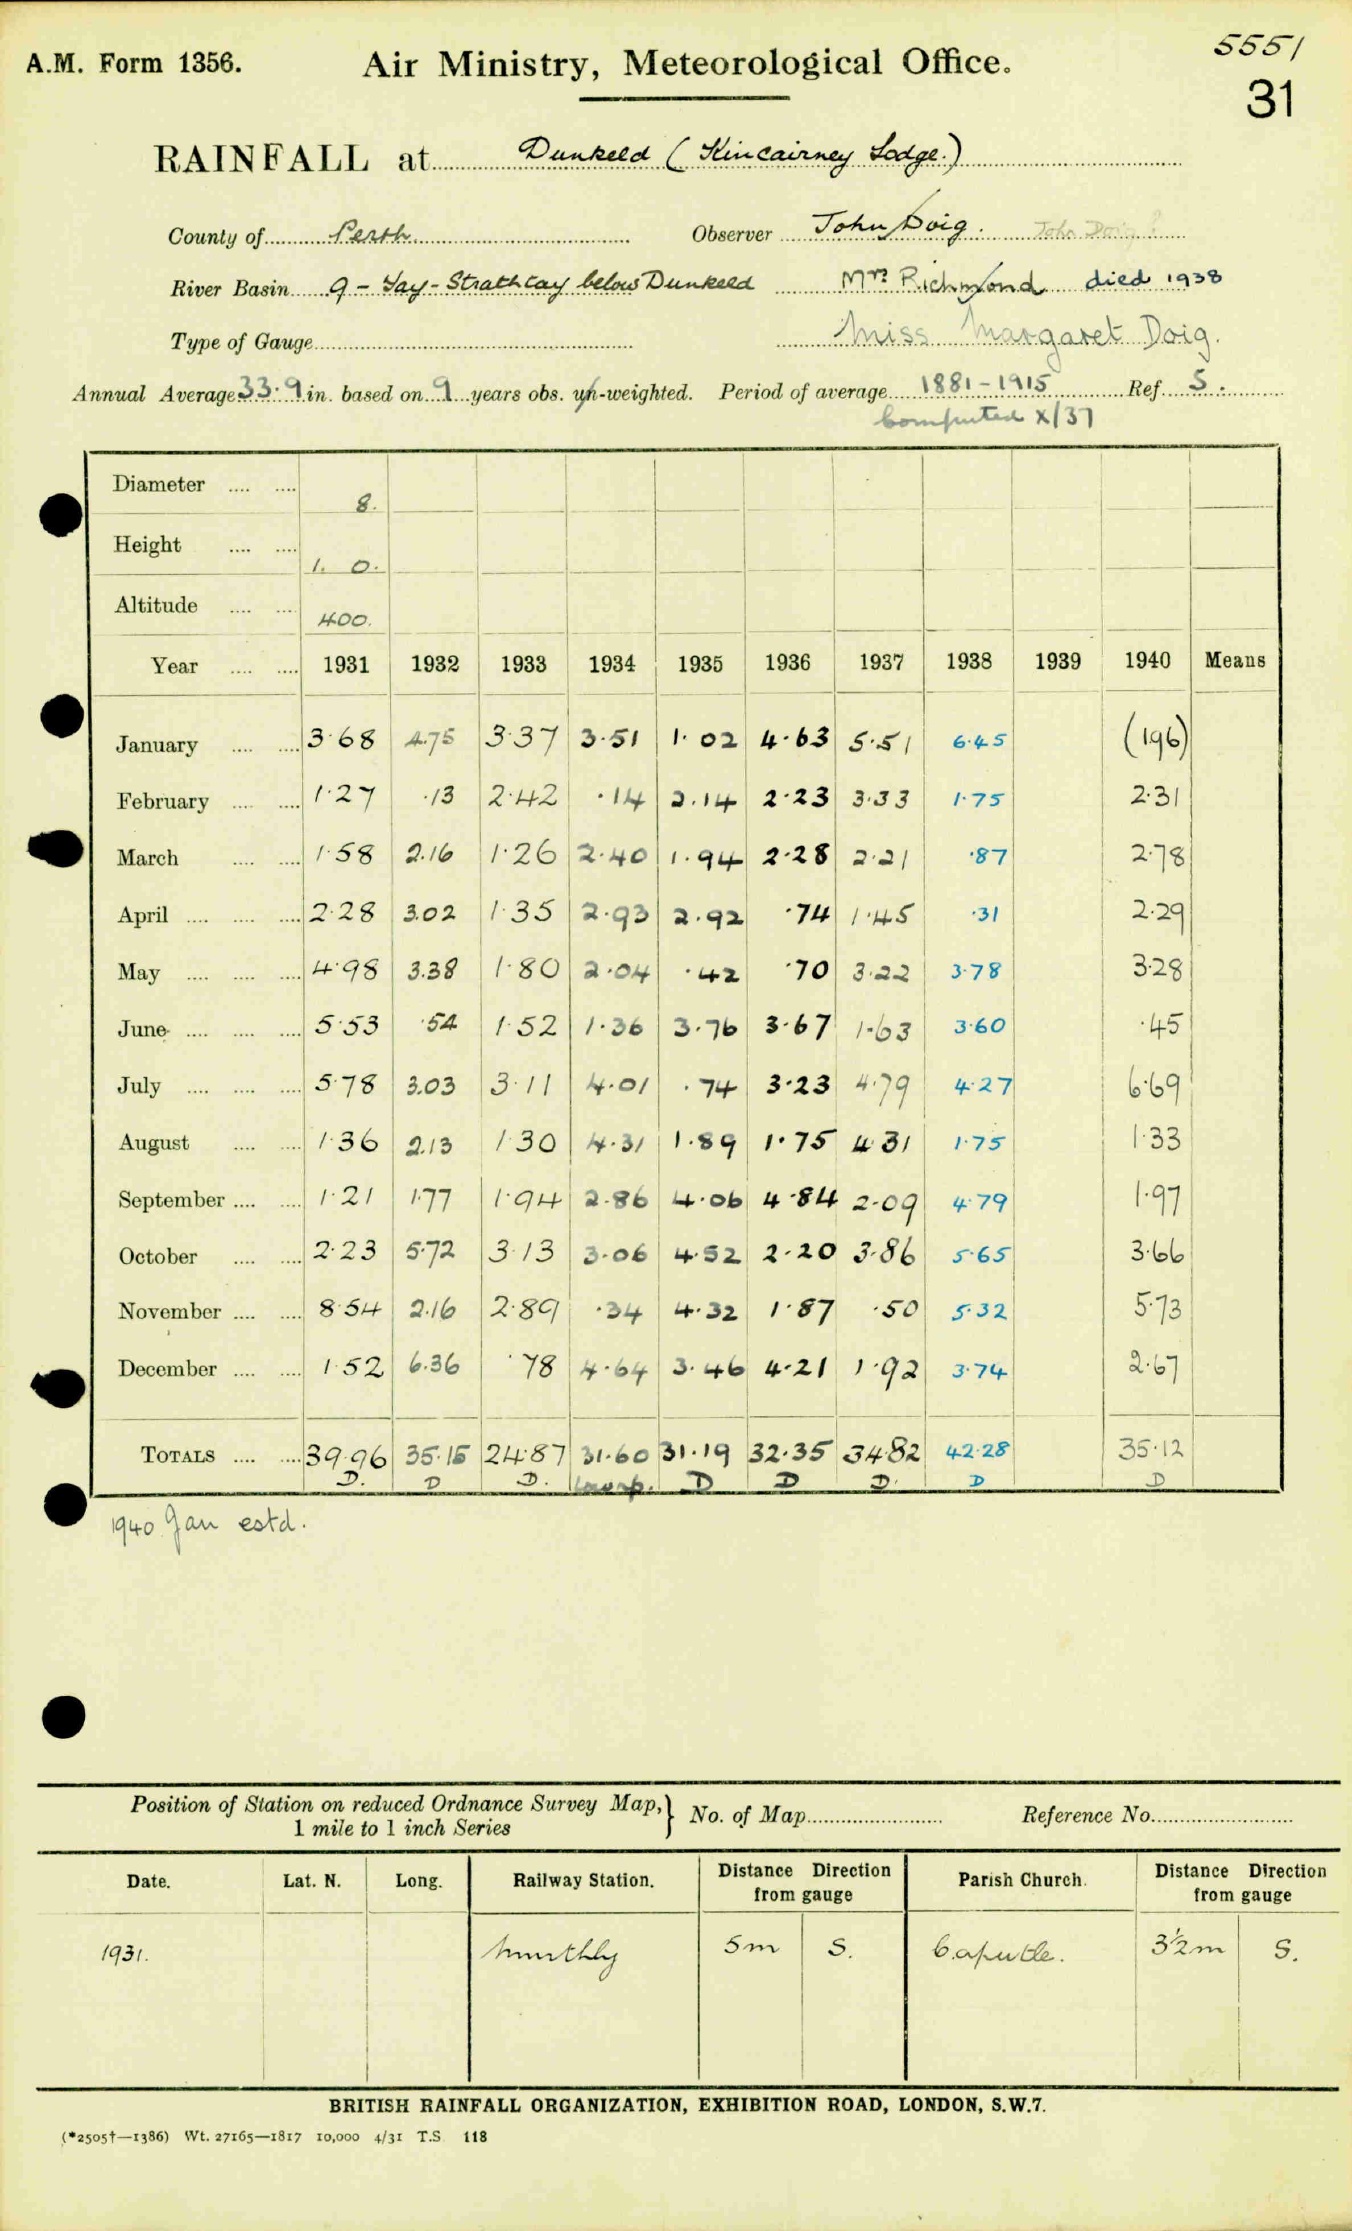 5551
A.M. Form 1356. Air Ministry, Meteorological Office.
31
RAINFALL at Dunkeld (Kincairney Lodge.)
County of Perth Observer John Doig. John Doig?
River Basin 9 - Tay - Strathtay below Dunkeld Mrs Richmond died 1938
Type of Gauge Miss Margaret Doig.
Annual Average 33.9 in. based on 9 years obs. un-weighted. Period of average 1881-1915 Ref. S.
Computed X/37
Diameter .... .... 8.
Height .... .... 1. 0.
Altitude .... .... 400.
Year .... .... 1931 1932 1933 1934 1935 1936 1937 1938 1939 1940 Means
January .... .... 3.68 4.75 3.37 3.51 1.02 4.63 5.51 6.45 (1.96)
February .... .... 1.27 .13 2.42 .14 2.14 2.23 3.33 1.75 2.31
March .... .... 1.58 2.16 1.26 2.40 1.94 2.28 2.21 .87 2.78
April .... .... .... 2.28 3.02 1.35 2.93 2.92 .74 1.45 .31 2.29
May .... .... .... 4.98 3.38 1.80 2.04 .42 .70 3.22 3.78 3.28
June .... .... .... 5.53 .54 1.52 1.36 3.76 3.67 1.63 3.60 .45
July .... .... .... 5.78 3.03 3.11 4.01 .74 3.23 4.79 4.27 6.69
August .... .... 1.36 2.13 1.30 4.31 1.89 1.75 4.31 1.75 1.33
September .... .... 1.21 1.77 1.94 2.86 4.06 4.84 2.09 4.79 1.97
October .... .... 2.23 5.72 3.13 3.06 4.52 2.20 3.86 5.65 3.66
November .... .... 8.54 2.16 2.89 .34 4.32 1.87 .50 5.32 5.73
December .... .... 1.52 6.36 .78 4.64 3.46 4.21 1.92 3.74 2.67
TOTALS .... .... 39.96 35.15 24.87 31.60 31.19 32.35 34.82 42.28 35.12
D. D D. D D D. D D
1940 Jan estd.
Position of Station on reduced Ordnance Survey Map,} No. of Map Reference No.
1 mile to 1 inch Series
Date. Lat. N. Long. Railway Station. Distance Direction from gauge Parish Church. Distance Direction from gauge
1931. Murthly 5m S. Caputle. 3½m S.
BRITISH RAINFALL ORGANIZATION, EXHIBITION ROAD, LONDON, S.W.7.
(*2505†—1386) Wt. 27165—1817 10,000 4/31 T.S. 118